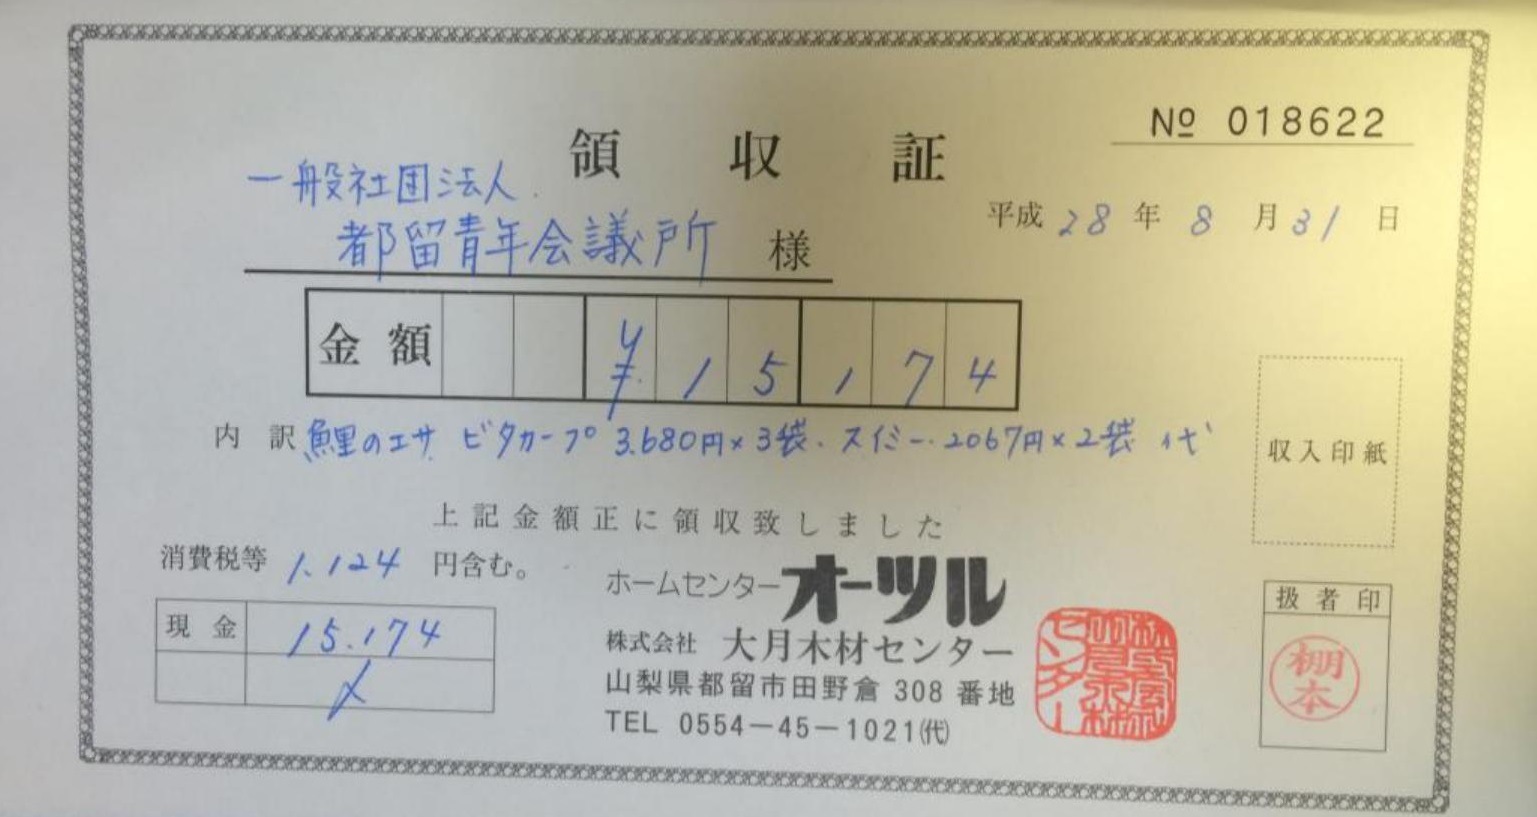 № 018622
領収証
一般社団法人
都留青年会議所 様
平成 28 年 8 月 31 日
金額 ¥15,174
内訳 鯉のエサ ビタカープ 3.680円×3袋. スイミー. 2067円×2袋 代
収入印紙
上記金額正に領収致しました
消費税等 1.124 円含む。
ホームセンターオーツル
現金 15.174
株式会社 大月木材センター
山梨県都留市田野倉 308 番地
TEL 0554-45-1021㈹
扱者印
棚本
株式会社大月木材センター